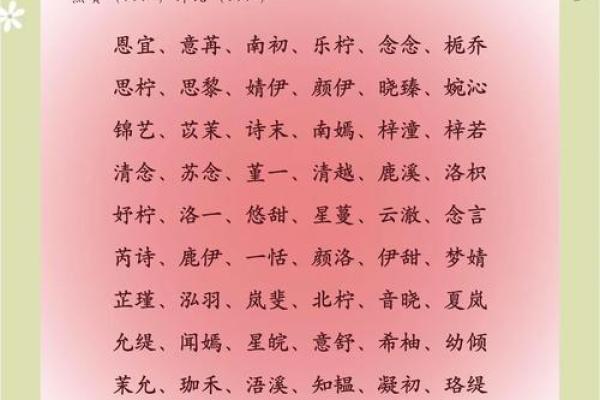 恩宜、意苒、南初、乐柠、念念、栀乔
思柠、思黎、婧伊、颜伊、晓臻、婉沁
锦艺、苡茉、诗末、南嫣、梓潼、梓若
清念、苏念、堇一、清越、鹿溪、洛枳
妤柠、洛一、悠甜、星蔓、云澈、念言
芮诗、鹿伊、一恬、颜洛、伊甜、梦婧
芷瑾、泓羽、岚斐、北柠、音晓、夏岚
允缇、闻嫣、星皖、意舒、希柚、幼倾
茉允、珈禾、浯溪、知韫、凝初、珞缇